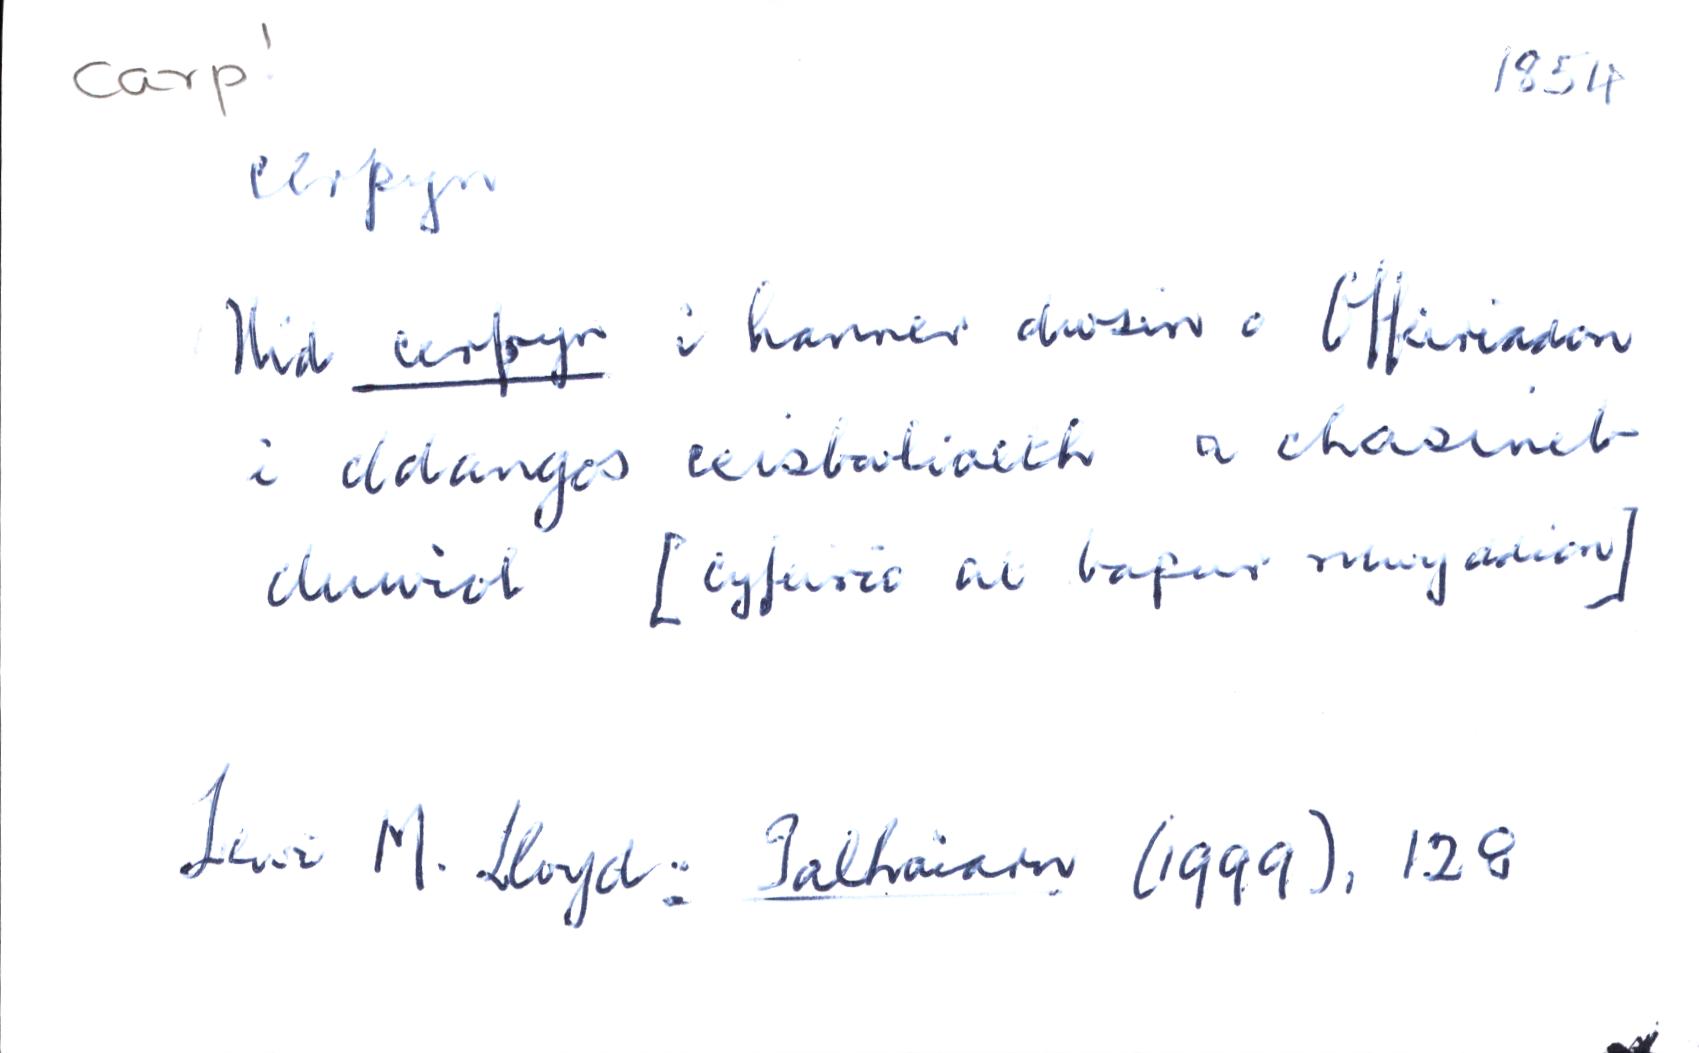 carp¹
1854
cerpyn
Nid cerpyn i hanner dwsin o Offeiriadon
i ddangos ceisbwliaeth a chasineb
duwiol [cyfeirio at bapur newyddion]
Dewi M. Lloyd: Talhaiarn (1999), 128